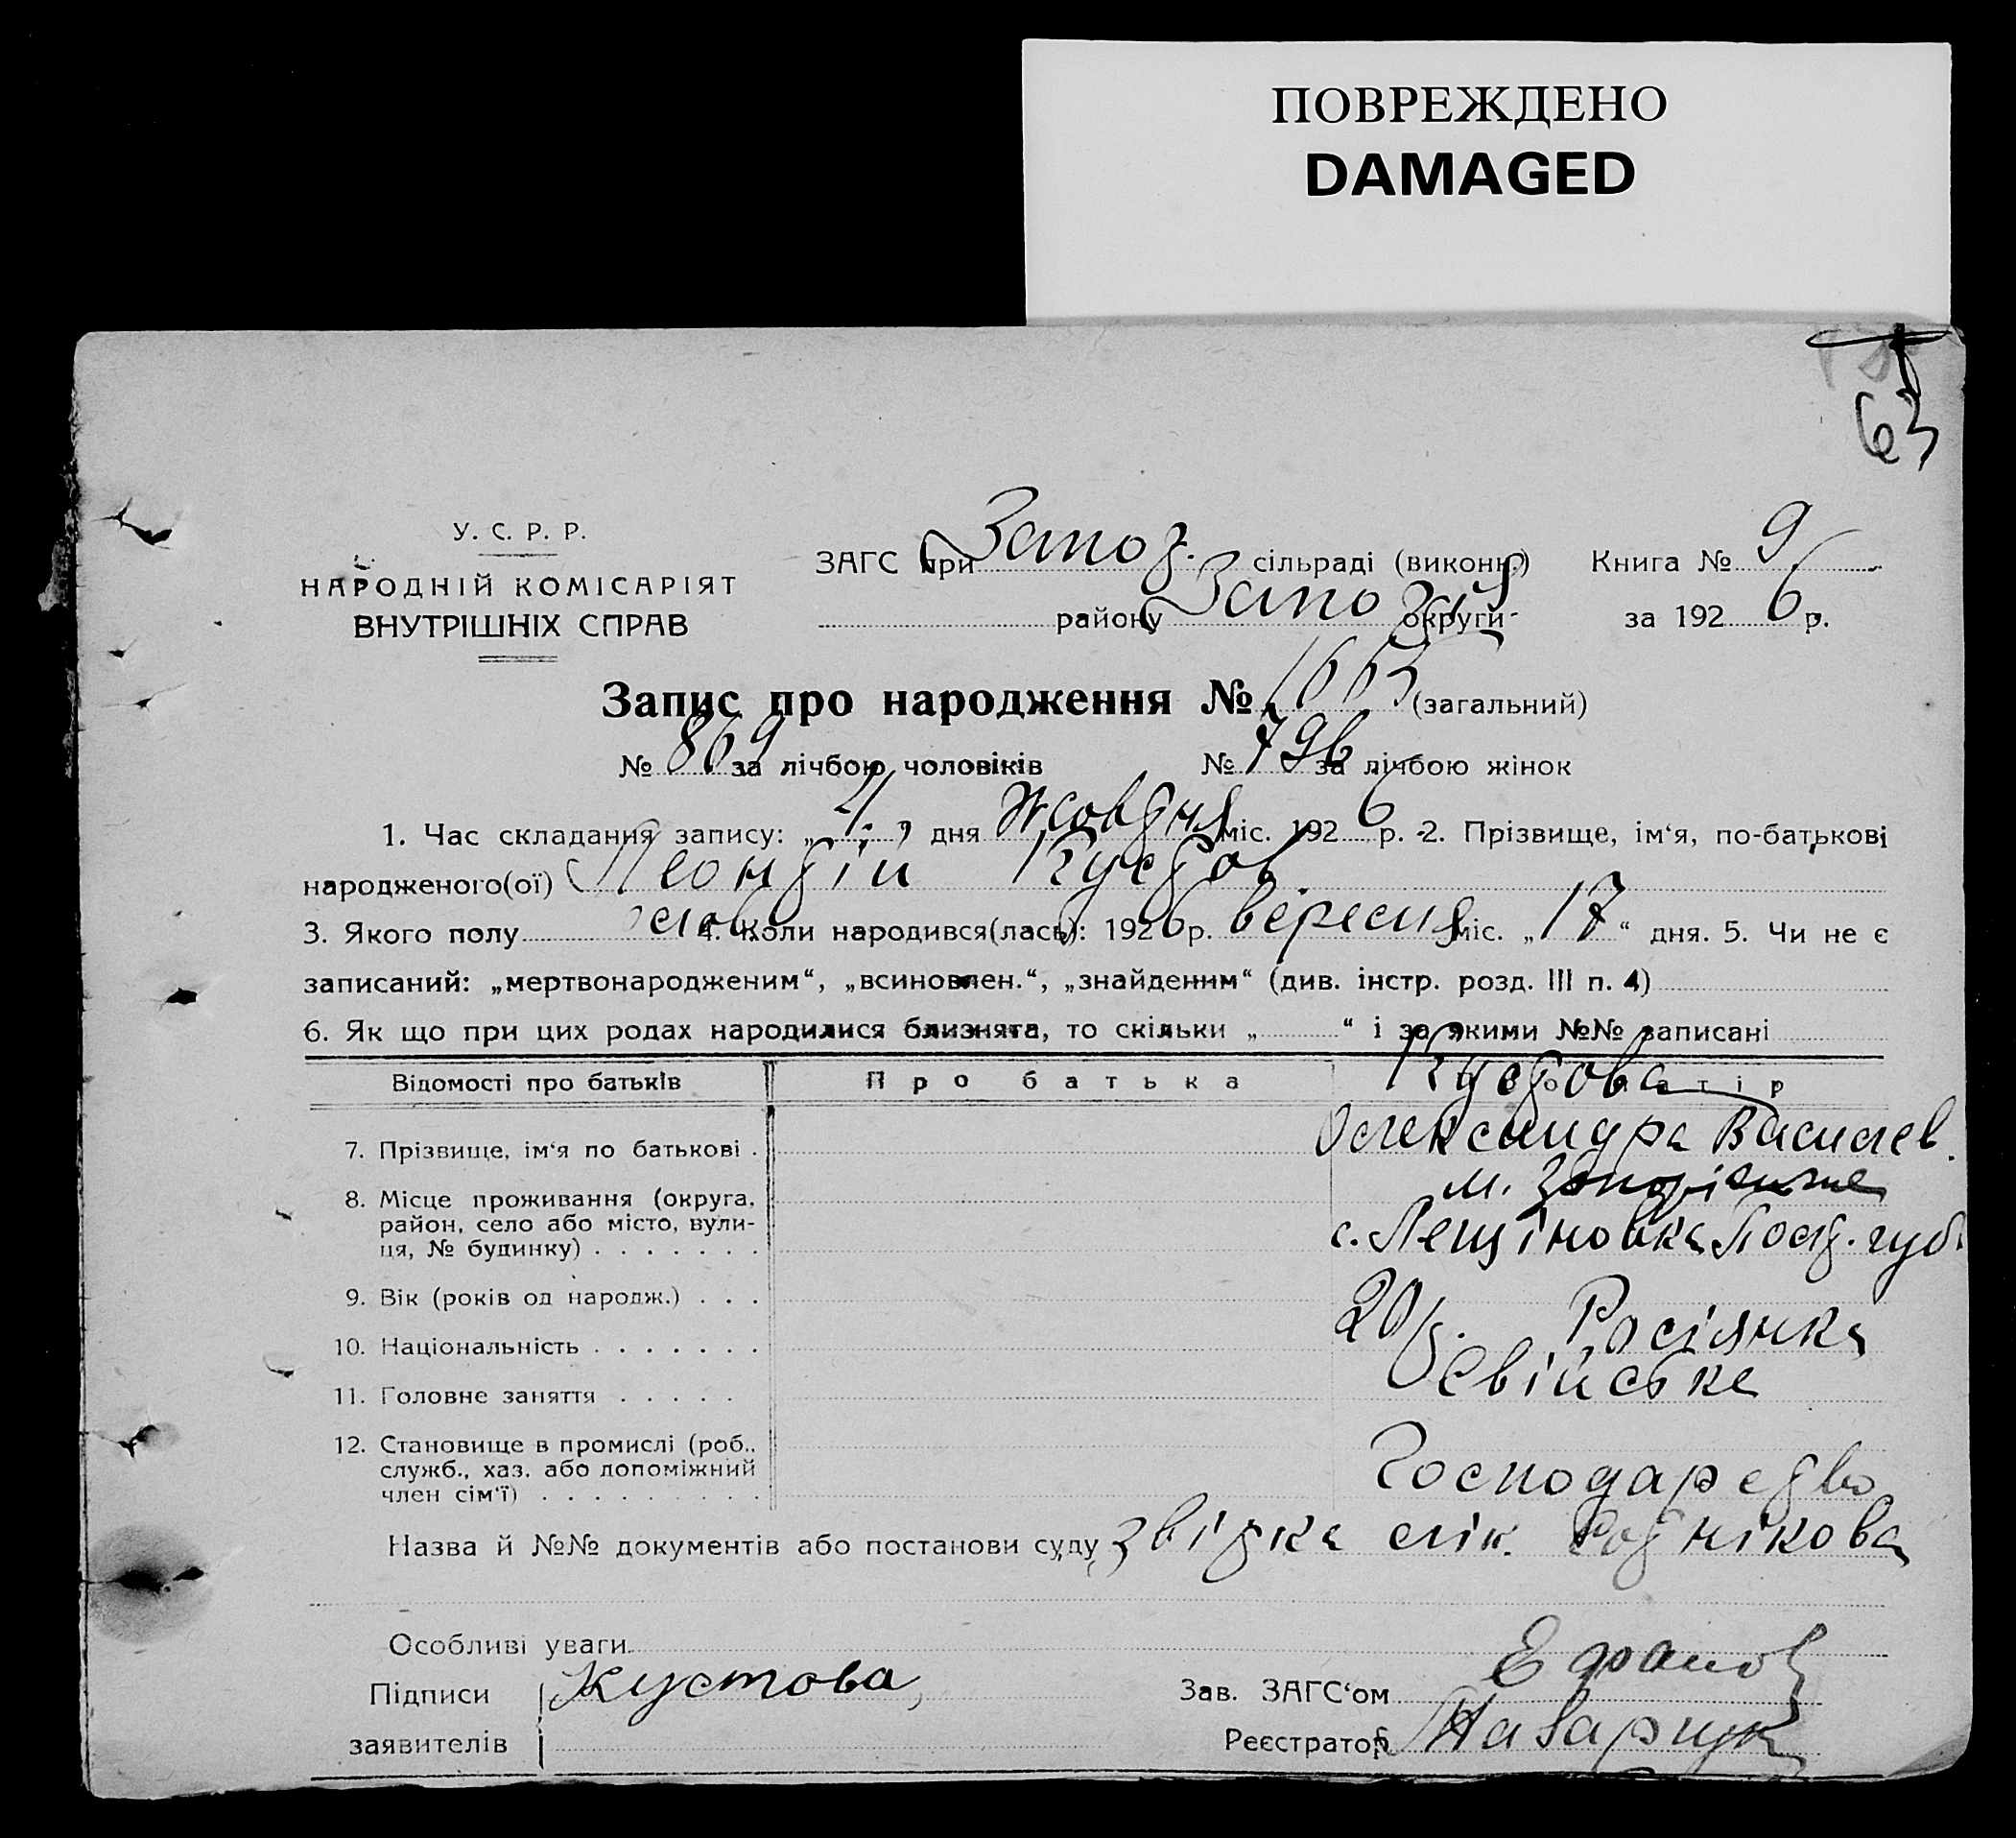 ПОВРЕЖДЕНО
DAMAGED
63
У. С. Р. Р.
НАРОДНІЙ КОМІСАРІЯТ
ВНУТРІШНІХ СПРАВ
ЗАГС при Запоз. сільраді (виконк.) Книга № 9
району Запо округи за 1926 р.
Запис про народження № 1665 (загальний)
№ 869 за лічбою чоловіків № 796 за лічбою жінок
1. Час складання запису: „4“ дня Жовтня міс. 1926 р. 2. Прізвище, ім‘я, по-батькові
народженого(ої) Леонтій Кустов
3. Якого полу чолов. 4. Коли народився(лась): 1926 р. вересня міс. „17“ дня. 5. Чи не є
записаний: „мертвонародженим“, „всиновлен.“, „знайденим“ (див. інстр. розд. III п. 4)
6. Як що при цих родах народилися близнята, то скільки „ “ і за якими №№ записані
Відомості про батьків Про батька Про матір
Кустова
7. Прізвище, ім‘я по батькові . Олександра Василев.
8. Місце проживання (округа, м. Запоріжже
район, село або місто, вули- с. Лещіновка Полт. губ.
ця, № будинку) . . . . . . .
9. Вік (років од народж.) . . . 20 р.
10. Національність . . . . . . . Росіянка
11. Головне заняття . . . . . свійське
12. Становище в промислі (роб..
служб., хаз. або допоміжний Господарство
член сім‘ї) . . . . . . . . .
Назва й №№ документів або постанови суду звідка лік.
Особливі уваги
Підписи Кустова Зав. ЗАГС‘ом
заявителів Реєстратор